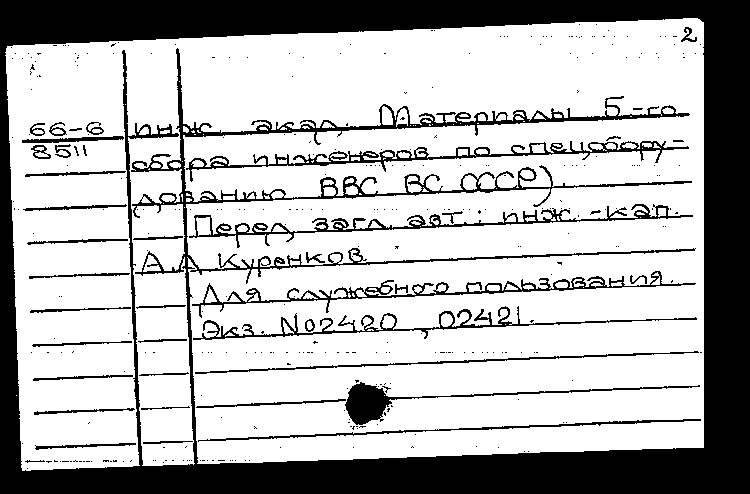 2
66-6 инж. акад. Материалы 5-го
8511 сбора инженеров по спецобору-
дованию ВВС ВС СССР).
Перед загл. авт.: инж.-кап.
А.А Куренков
Для служебного пользования.
Экз. №02420, 02421.